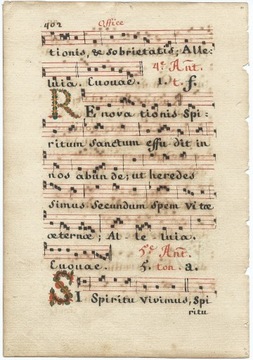 402 Office
tionis, & sobrietatis; Alle-
luia. Euouae. 1. t. f.
4.e Ant.
Renovationis Spi-
ritum Sanctum effudit in
nos abunde; ut heredes
simus secundum spem vitæ
æternæ; Alleluia.
5.e Ant.
Euouae. 5. ton. a.
SI Spiritu vivimus, Spi
ritu